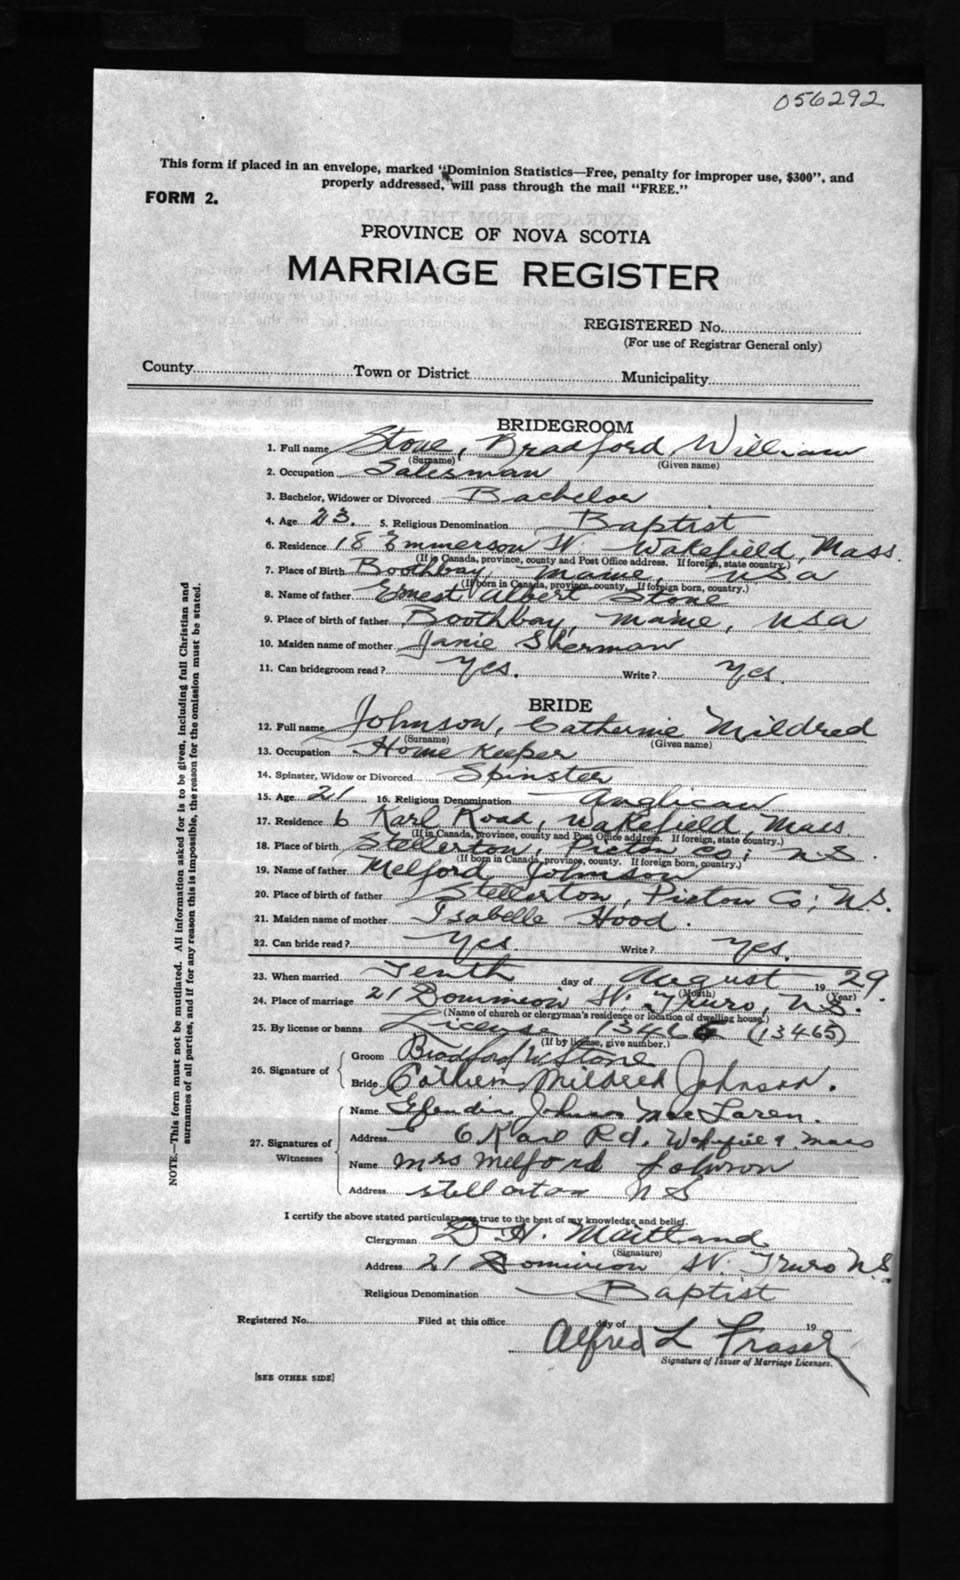 056292
This form if placed in an envelope, marked "Dominion Statistics—Free, penalty for improper use, $300", and
properly addressed, will pass through the mail "FREE."
FORM 2.
PROVINCE OF NOVA SCOTIA
MARRIAGE REGISTER
REGISTERED No.
(For use of Registrar General only)
County Town or District Municipality
BRIDEGROOM
1. Full name Stone, Bradford William
(Surname) (Given name)
2. Occupation Salesman
3. Bachelor, Widower or Divorced Bachelor
4. Age 23. 5. Religious Denomination Baptist
6. Residence 18 Emmerson St. Wakefield, Mass.
(If in Canada, province, county and Post Office address. If foreign, state country.)
7. Place of Birth Boothbay, Maine, USA
(If born in Canada, province, county. If foreign born, country.)
8. Name of father Ernest Albert Stone
9. Place of birth of father Boothbay, Maine, USA
10. Maiden name of mother Janie Sherman
11. Can bridegroom read? Yes. Write? Yes.
BRIDE
12. Full name Johnson, Catherine Mildred
(Surname) (Given name)
13. Occupation Home Keeper
14. Spinster, Widow or Divorced Spinster
15. Age 21 16. Religious Denomination Anglican
17. Residence 6 Karl Road, Wakefield, Mass
(If in Canada, province, county and Post Office address. If foreign, state country.)
18. Place of birth Stellerton, Pictou Co; N.S.
(If born in Canada, province, county. If foreign born, country.)
19. Name of father Melford Johnson
20. Place of birth of father Stellerton, Pictou Co; N.S.
21. Maiden name of mother Isabelle Hood.
22. Can bride read? Yes. Write? Yes.
23. When married Tenth day of August 1929.
(Month) (Year)
24. Place of marriage 21 Dominion St. Truro, N.S.
(Name of church or clergyman's residence or location of dwelling house.)
25. By license or banns License 13465 (13465)
(If by license, give number.)
26. Signature of Groom Bradford W Stone
Bride Mildred Johnson.
27. Signatures of Witnesses Name Johnson MacLaren.
Address 6 Karl Rd. Wakefield Mass
Name Mrs Melford Johnson
Address Stellarton N S
I certify the above stated particulars are true to the best of my knowledge and belief.
Clergyman D H. Maitland
(Signature)
Address 21 Dominion St. Truro N.S.
Religious Denomination Baptist
Registered No. Filed at this office day of 19
Alfred L Fraser
Signature of Issuer of Marriage Licenses.
[SEE OTHER SIDE]
NOTE.—This form must not be mutilated. All information asked for is to be given, including full Christian and
surnames of all parties, and if for any reason this is impossible, the reason for the omission must be stated.